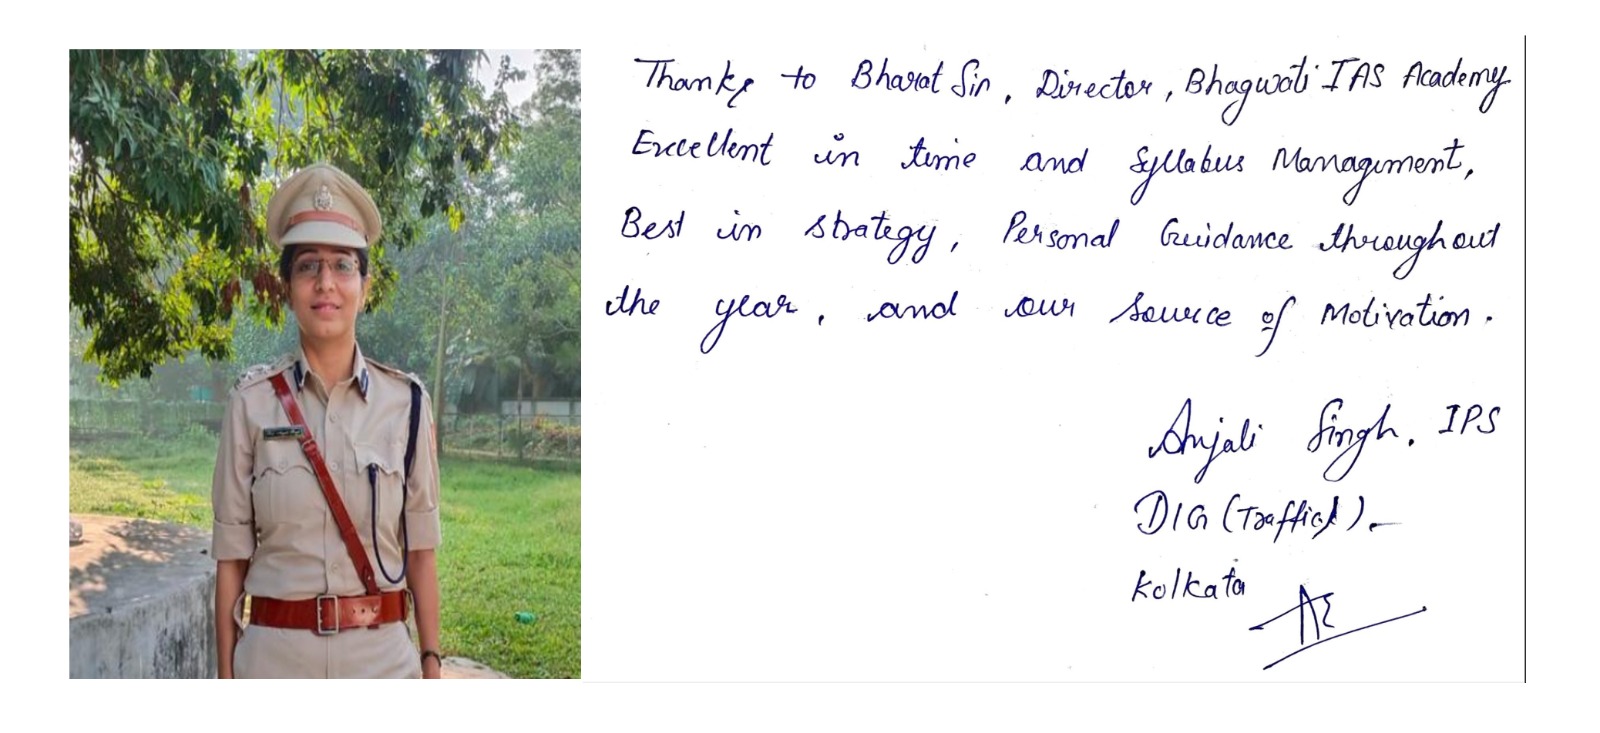 Thanks to Bharat Sir, Director, Bhagwati IAS Academy
Excellent in time and Syllabus Management,
Best in strategy, Personal Guidance throughout
the year, and our source of Motivation.
Anjali Singh, IPS
DIG (Traffic).
Kolkata